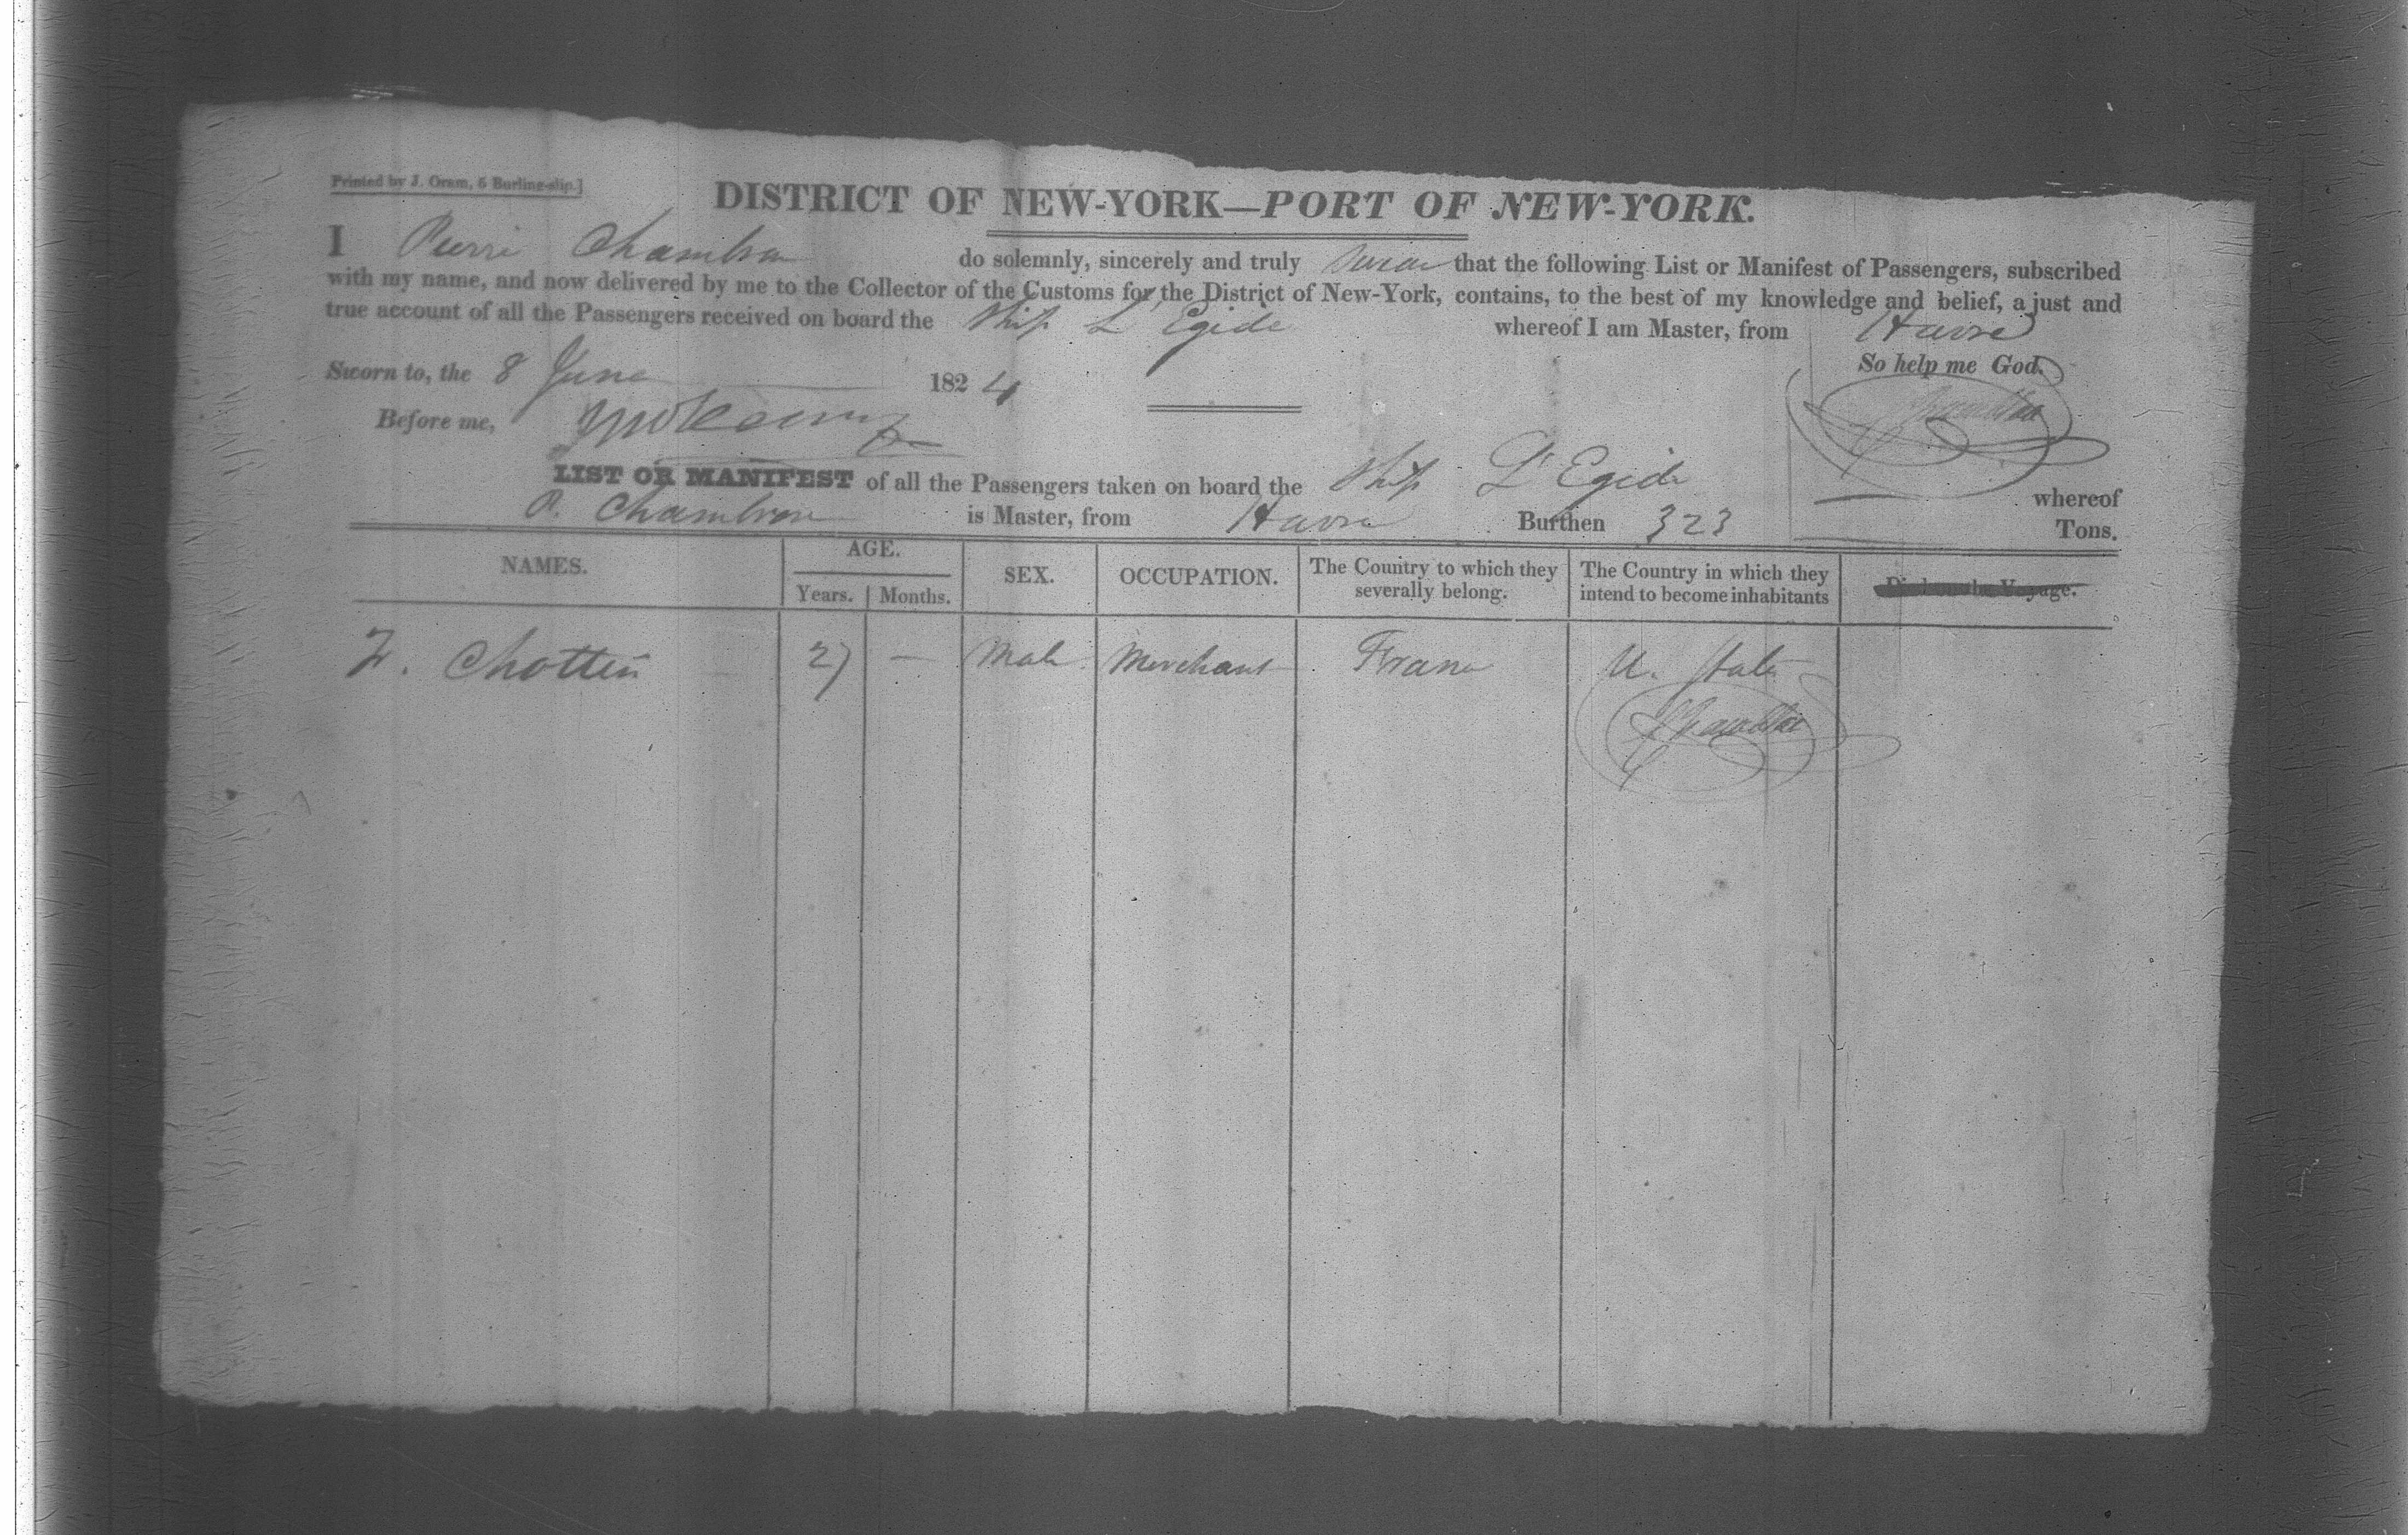 Printed by J. Oram, 5 Burling-slip.]
DISTRICT OF NEW-YORK—PORT OF NEW-YORK.
I Pierre Chambron do solemnly, sincerely and truly swear that the following List or Manifest of Passengers, subscribed
with my name, and now delivered by me to the Collector of the Customs for the District of New-York, contains, to the best of my knowledge and belief, a just and
true account of all the Passengers received on board the Ship L'Egide whereof I am Master, from Havre
So help me God.
Sworn to, the 8 June 1824
Before me,
LIST OR MANIFEST of all the Passengers taken on board the Ship L'Egide whereof
P. Chambron is Master, from Havre Burthen 323 Tons.
NAMES. AGE. SEX. OCCUPATION. The Country to which they severally belong. The Country in which they intend to become inhabitants Died on the Voyage.
Years. Months.
F. Chottin 27 — Male Merchant France U. States